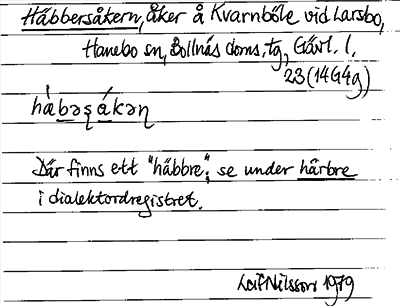 Häbbersåkern, åker å Kvarnböle vid Larsbo,
Hanebo sn, Bollnäs doms. tg, Gävl. l.
23 (14G4g)
hàbəʂákəɳ
Där finns ett "häbbre", se under härbre
i dialektordregistret.
Leif Nilsson 1979